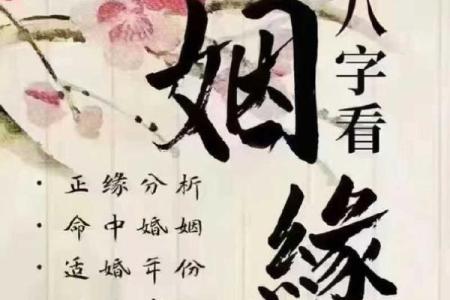 八字看
姻緣
· 正缘分析
· 命中婚姻
· 适婚年份